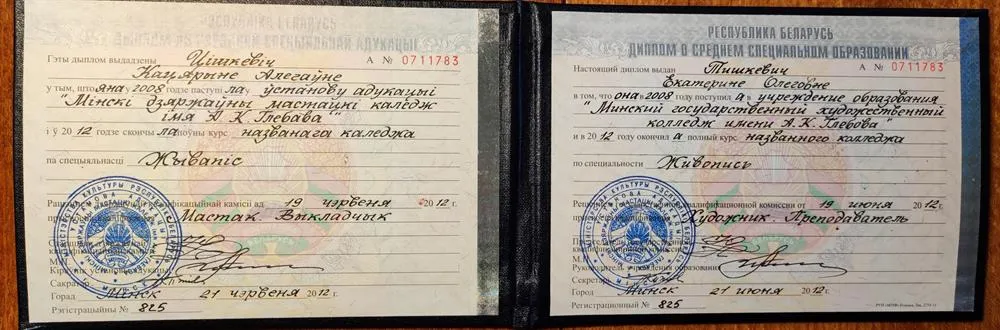 Гэты дыплом выдадзены Цішкевіч
А № 0711783
Кацярыне Алегаўне
у тым, што яна 2008 годзе паступі ла ў установу адукацыі
"Мінскі дзяржаўны мастацкі каледж
імя А. К. Глебава"
і ў 2012 годзе скончы ла поўны курс названага каледжа
па спецыяльнасці Жывапіс
кваліфікацыйнай камісіі ад 19 чэрвеня 2012 г.
Мастак. Выкладчык
Сакратар
Горад Мінск 21 чэрвеня 2012 г.
Рэгістрацыйны № 825
РЕСПУБЛИКА БЕЛАРУСЬ
ДИПЛОМ О СРЕДНЕМ СПЕЦИАЛЬНОМ ОБРАЗОВАНИИ
Настоящий диплом выдан Тишкевич
А № 0711783
Екатерине Олеговне
в том, что она в 2008 году поступил а в учреждение образования
"Минский государственный художественный
колледж имени А. К. Глебова"
и в 2012 году окончил а полный курс названного колледжа
по специальности Живопись
квалификационной комиссии от 19 июня 2012 г.
Художник. Преподаватель
Руководитель учреждения образования
Секретарь
Город Минск 21 июня 2012 г.
Регистрационный № 825